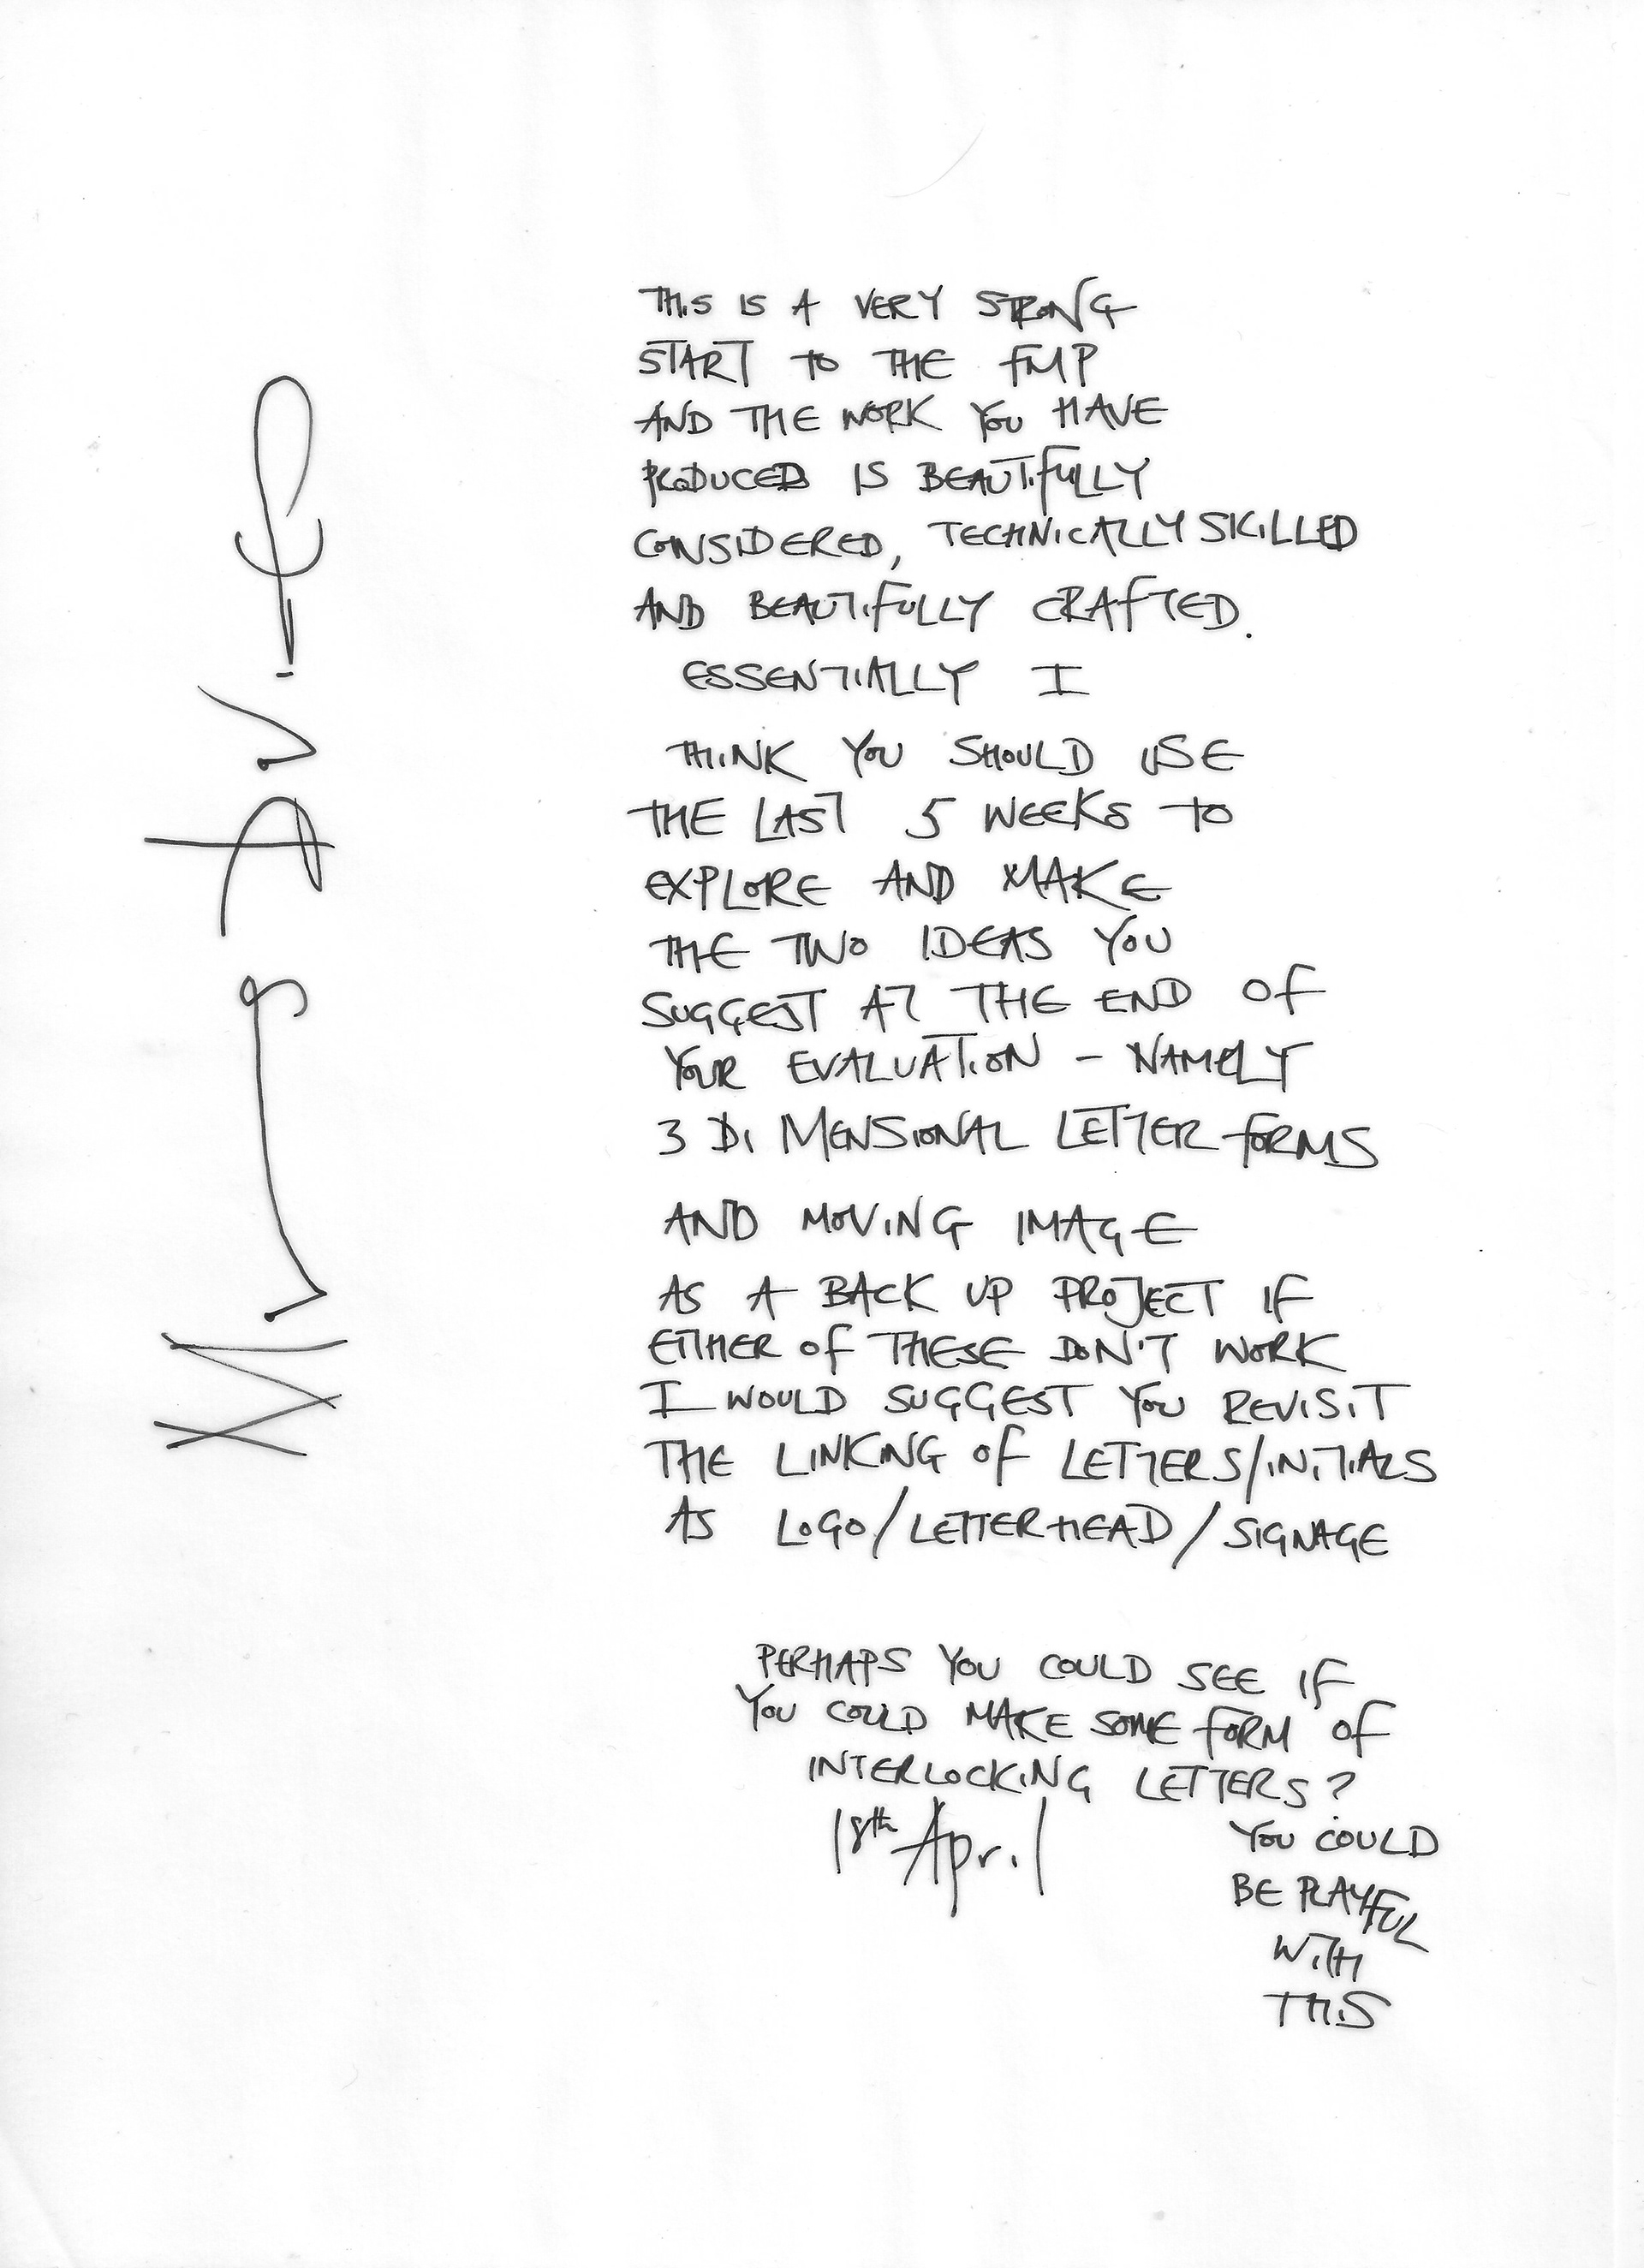 THIS IS A VERY STRONG
START TO THE FMP
AND THE WORK YOU HAVE
PRODUCED IS BEAUTIFULLY
CONSIDERED, TECHNICALLY SKILLED
AND BEAUTIFULLY CRAFTED.
ESSENTIALLY I
THINK YOU SHOULD USE
THE LAST 5 WEEKS TO
EXPLORE AND MAKE
THE TWO IDEAS YOU
SUGGEST AT THE END OF
YOUR EVALUATION - NAMELY
3 DIMENSIONAL LETTER FORMS
AND MOVING IMAGE
AS A BACK UP PROJECT IF
EITHER OF THESE DON'T WORK
I WOULD SUGGEST YOU REVISIT
THE LINKING OF LETTERS/INITIALS
AS LOGO/LETTERHEAD/SIGNAGE
PERHAPS YOU COULD SEE IF
YOU COULD MAKE SOME FORM OF
INTERLOCKING LETTERS?
18th April
YOU COULD
BE PLAYFUL
WITH
THIS